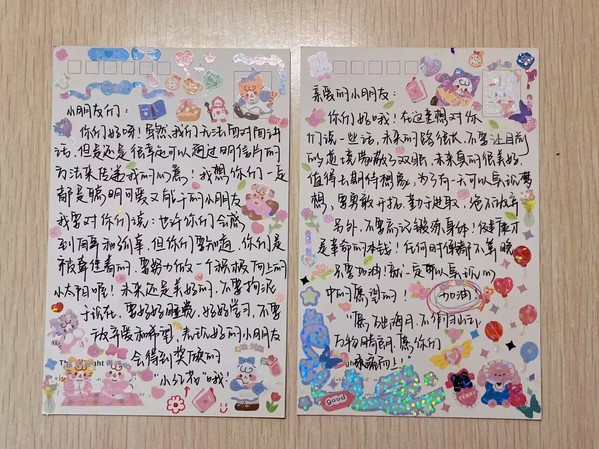 小朋友们：
你们好呀！虽然我们无法面对面讲
话，但是还是很幸运可以通过明信片的
方法来传递我的心意！我想你们一定
都是聪明可爱又能干的小朋友
我要对你们说：也许你们会感
到自卑和孤单，但你们要知道，你们是
被牵挂着的，要努力做一个积极向上的
小太阳呢！未来还是美好的，不要拘泥
于现在，要好好睡觉，好好学习，不要
放弃爱和希望，表现好的小朋友
会得到奖励的
小红花"哦！
The
ght
亲爱的小朋友：
你们好哦！在这里想对你
们说一些话，未来的路很长，不要让目前
的
蒙蔽了双眼，未来真的很美好，
值得去期待想象，为了有一天可以实现梦
想，要勇敢开拓，勤于进取，绝不放弃
另外，不要忘记锻炼身体！健康才
是革命的本钱！任何时候都不算晚
要加油！就一定可以实现心
中的愿望的！
加油！
愿
海月，不
万物晴朗，愿你们
乘
而上！
good